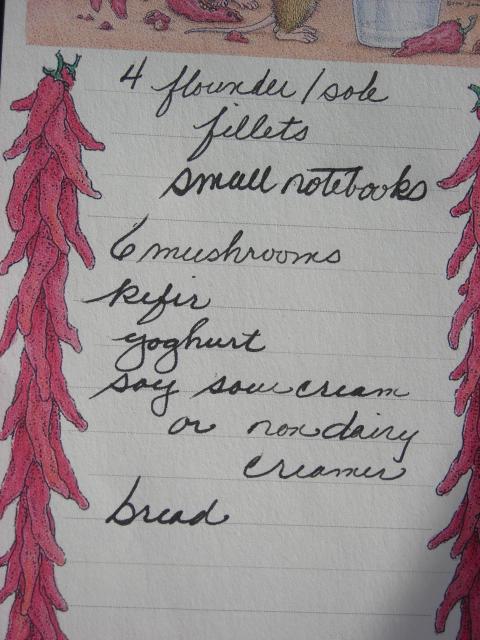 4 flounder/sole
fillets
small notebooks
6 mushrooms
kefir
yoghurt
soy sour cream
or nondairy
creamer
bread